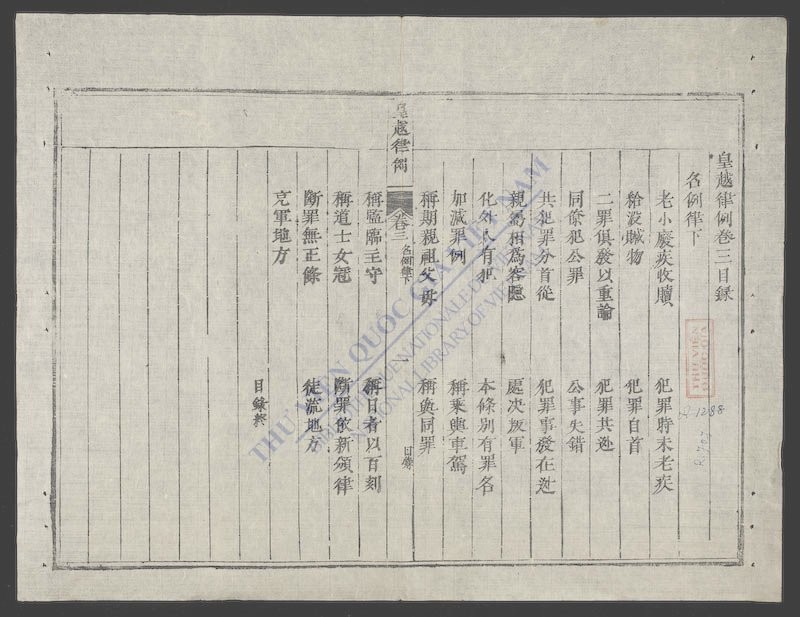 皇越律例卷三目録
名例律下
老小廢疾收贖
犯罪時未老疾
給沒贓物
犯罪自首
二罪俱發以重論
犯罪共逃
同僚犯公罪
公事失錯
共犯罪分首從
犯罪事發在逃
親屬相為容隱
處决叛軍
化外人有犯
本條別有罪名
加減罪例
稱乘輿車駕
稱期親祖父母
稱與同罪
皇越律例
卷三
名例律下
一
目錄
稱監臨主守
稱日者以百刻
稱道士女冠
斷罪依新頒律
斷罪無正條
徒流地方
充軍地方
目錄終
THƯ VIỆN QUỐC GIA VIỆT NAM
BIBLIOTHÈQUE NATIONALE DU VIETNAM
NATIONAL LIBRARY OF VIETNAM
THƯ VIỆN
QUỐC GIA
R.1288